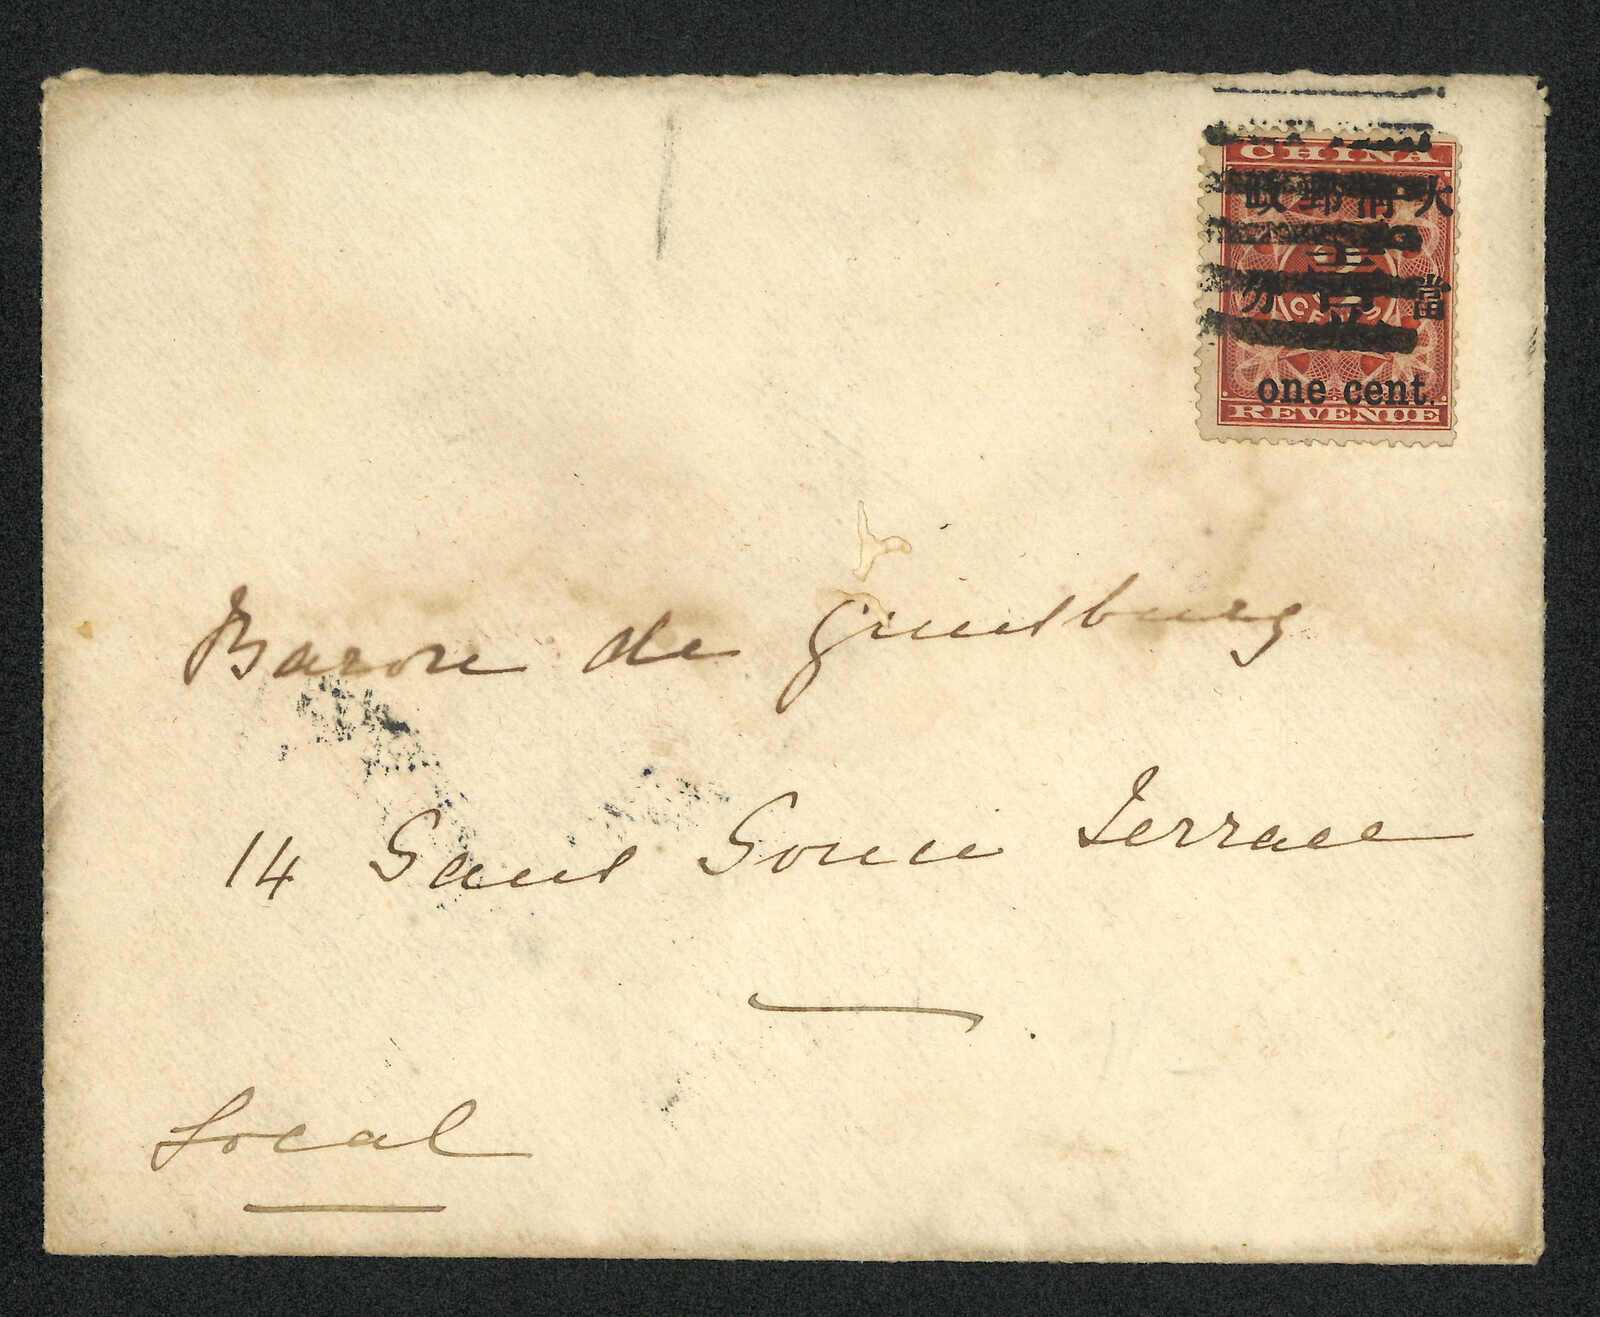 CHINA
大清郵政
當壹分
one cent.
REVENUE
Baron de Gunsburg
14 Sans Souci Terrace
Local